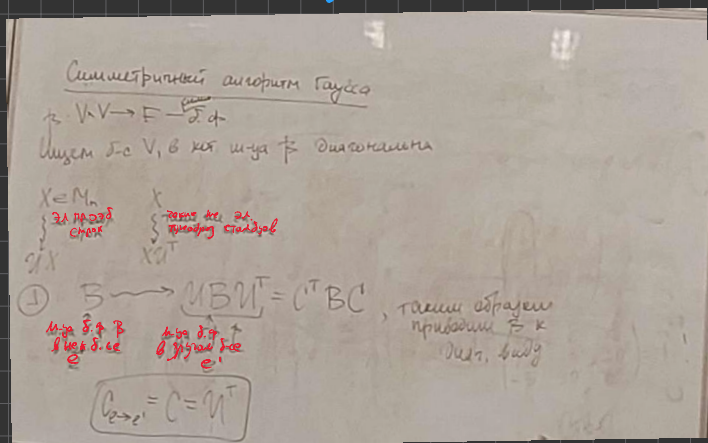 Симметричный алгоритм Гаусса
β: V×V → F — симм б.ф
Ищем б-с V, в кот м-ца β диагональна
X ∈ Mn X
эл преоб строк такие же эл. преобраз столбцов
UX XUᵀ
① B ⟶ UBUᵀ = CᵀBC, таким образом
приводим B к
диаг. виду
м-ца б.ф β м-ца б.ф
в нек б-се в другом б-се
e e'
C e→e' = C = Uᵀ